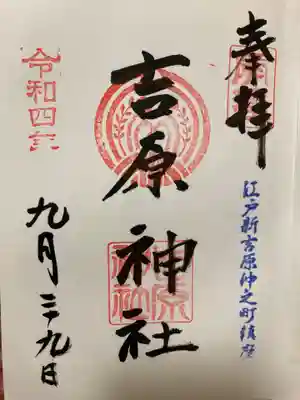 奉拝
江戸新吉原仲之町鎮座
吉原神社
令和四年
九月二十九日